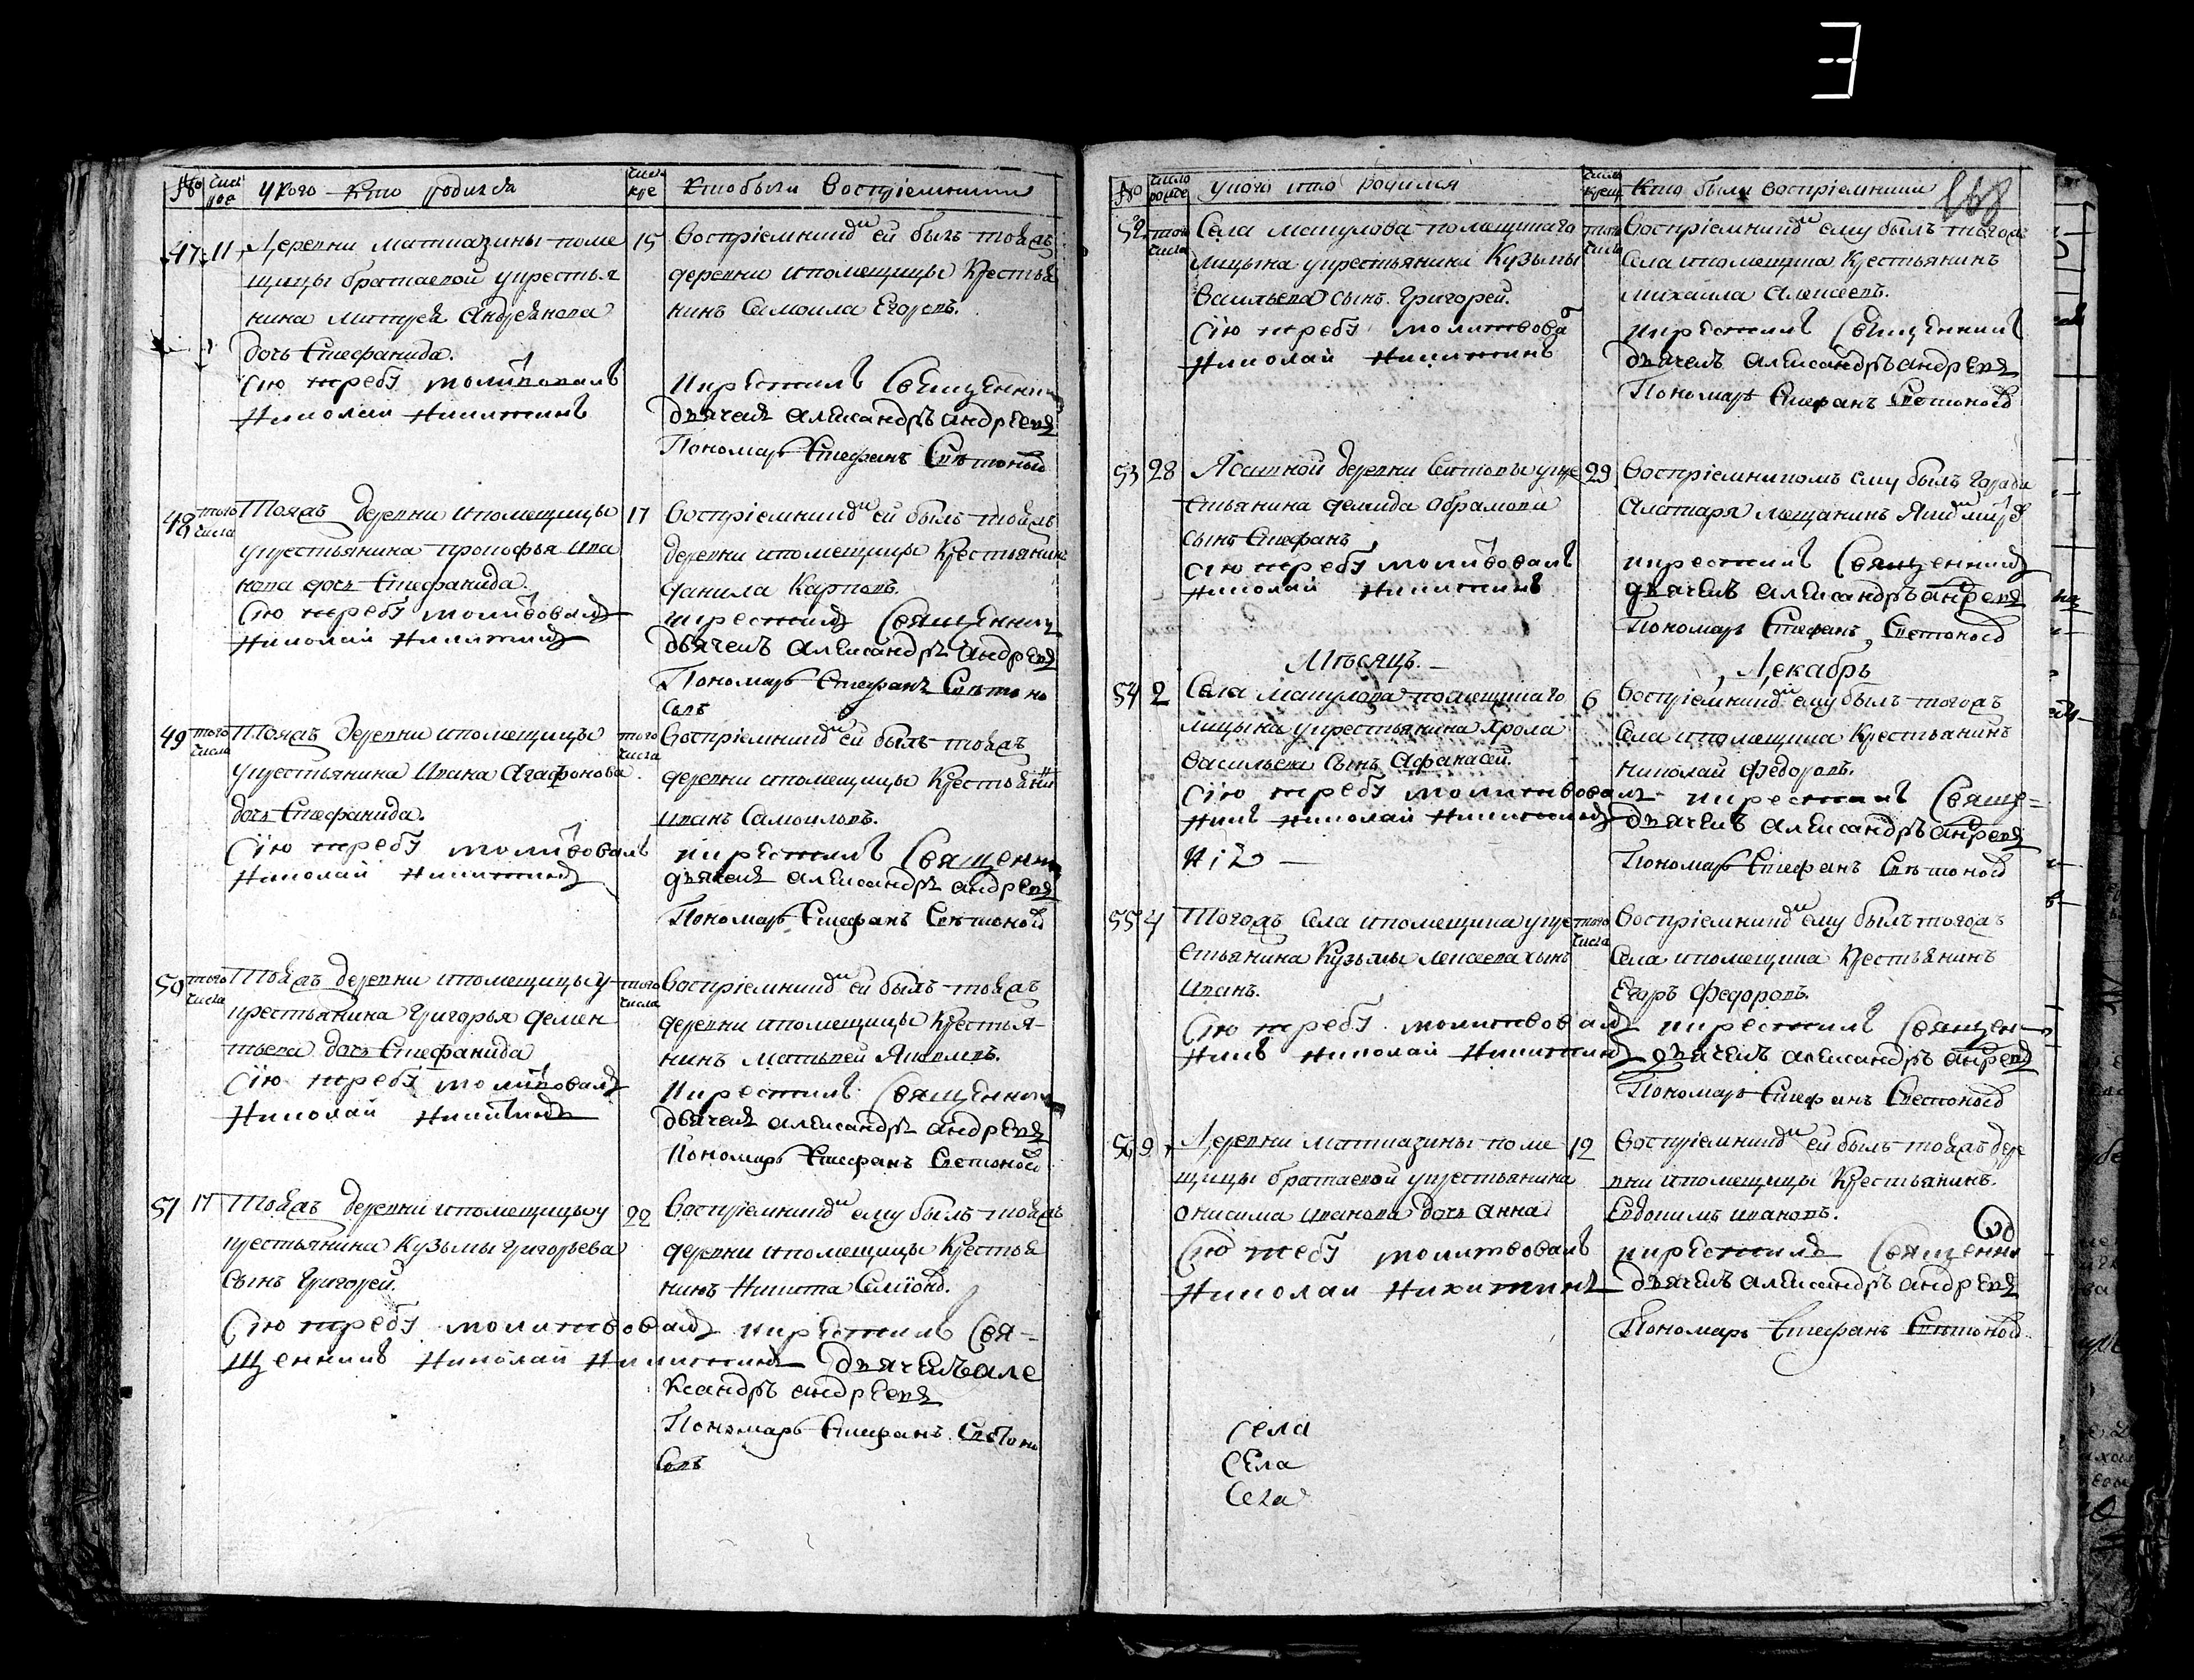 №
число рож
У кого кто родился
число кре
Кто были восприемники
47
11
Деревни матиазины поме
щицы братаевой у крестья
нина Митрея Андреянова
дочь Стефанида.
Сию требу молитвовалъ
Николай Никитинъ
15
Восприемникомъ ей былъ тояжъ
деревни и помещицы крестья
нинъ Самоила Егоровъ.
и крестилъ Священникъ
дьячекъ александръ андреевъ
Пономарь Стефанъ Светоносовъ
48
того числа
Тояжъ деревни и помещицы
у крестьянина Прокофья Ива
нова дочь Стефанида.
Сию требу молитвовалъ
Николай Никитинъ
17
Восприемникомъ ей былъ тояжъ
деревни и помещицы крестьянинъ
данила Карповъ.
и крестилъ Священникъ
дьячекъ александръ андреевъ
Пономарь Стефанъ Светоно
совъ
49
того числа
Тояжъ деревни и помещицы
у крестьянина Ивана Агафонова
дочь Стефанида.
Сию требу молитвовалъ
Николай Никитинъ
того числа
Восприемникомъ ей былъ тояжъ
деревни и помещицы крестьянинъ
иванъ Самоиловъ.
и крестилъ Священникъ
дьячекъ александръ андреевъ
Пономарь Стефанъ Светоносовъ
50
того числа
Тояжъ деревни и помещицы у
крестьянина Григорья демен
тьева дочь Стефанида
Сию требу молитвовалъ
Николай Никитинъ
того числа
Восприемникомъ ей былъ тояжъ
деревни и помещицы крестья-
нинъ Матвей Яковлевъ.
и крестилъ Священникъ
дьячекъ александръ андреевъ
Пономарь Стефанъ Светоносовъ
51
17
Тояжъ деревни и помещицы у
крестьянина Кузьмы Григорьева
сынъ Григорей.
Сию требу молитвовалъ и крестилъ Свя-
щенникъ Николай Никитинъ
22
Восприемникомъ ему былъ тояжъ
деревни и помещицы крестья
нинъ Никита Семионовъ.
дьячекъ але
ксандръ андреевъ
Пономарь Стефанъ Светоно
совъ
№
число рожде
У кого кто родился
число крещ
Кто были восприемники
168
52
того числа
Села макулова помещика го
лицына у крестьянина Кузьмы
Васильева сынъ Григорей.
Сию требу молитвовалъ
Николай Никитинъ
того числа
Восприемникомъ ему былъ тогожъ
села и помещика крестьянинъ
михаила алексеевъ.
и крестилъ Священникъ
дьячекъ александръ андреевъ
Пономарь Стефанъ Светоносовъ
53
28
Ясашной деревни Ситовы у кре
стьянина демида абрамова
сынъ Стефанъ
Сию требу молитвовалъ
Николай Никитинъ
29
Восприемникомъ ему былъ города
алатаря мещанинъ
и крестилъ Священникъ
дьячекъ александръ андреевъ
Пономарь Стефанъ Светоносовъ
Месяцъ.
Декабрь
54
2
Села макулова помещика го
лицына у крестьянина Хрола
Васильева сынъ Афанасей.
Сию требу молитвовалъ и крестилъ Свяще-
никъ Николай Никитинъ
6
Восприемникомъ ему былъ тогожъ
села и помещика крестьянинъ
николай федоровъ.
дьячекъ александръ андреевъ
Пономарь Стефанъ Светоносовъ
55
4
Тогожъ села и помещика у кре
стьянина Кузьмы алексеева сынъ
Иванъ.
Сию требу молитвовалъ и крестилъ Священ-
никъ Николай Никитинъ
того числа
Восприемникомъ ему былъ тогожъ
села и помещика крестьянинъ
Егоръ федоровъ.
дьячекъ александръ андреевъ
Пономарь Стефанъ Светоносовъ
56
9
Деревни матиазины поме
щицы братаевой у крестьянина
онисима иванова дочь анна
Сию требу молитвовалъ
Николаи Никитинъ
12
Восприемникомъ ей былъ тояжъ дере
вни и помещицы крестьянинъ.
Евдокимъ ивановъ.
и крестилъ Священни
дьячекъ александръ андреевъ
Пономарь Стефанъ Светоносовъ
села
села
села